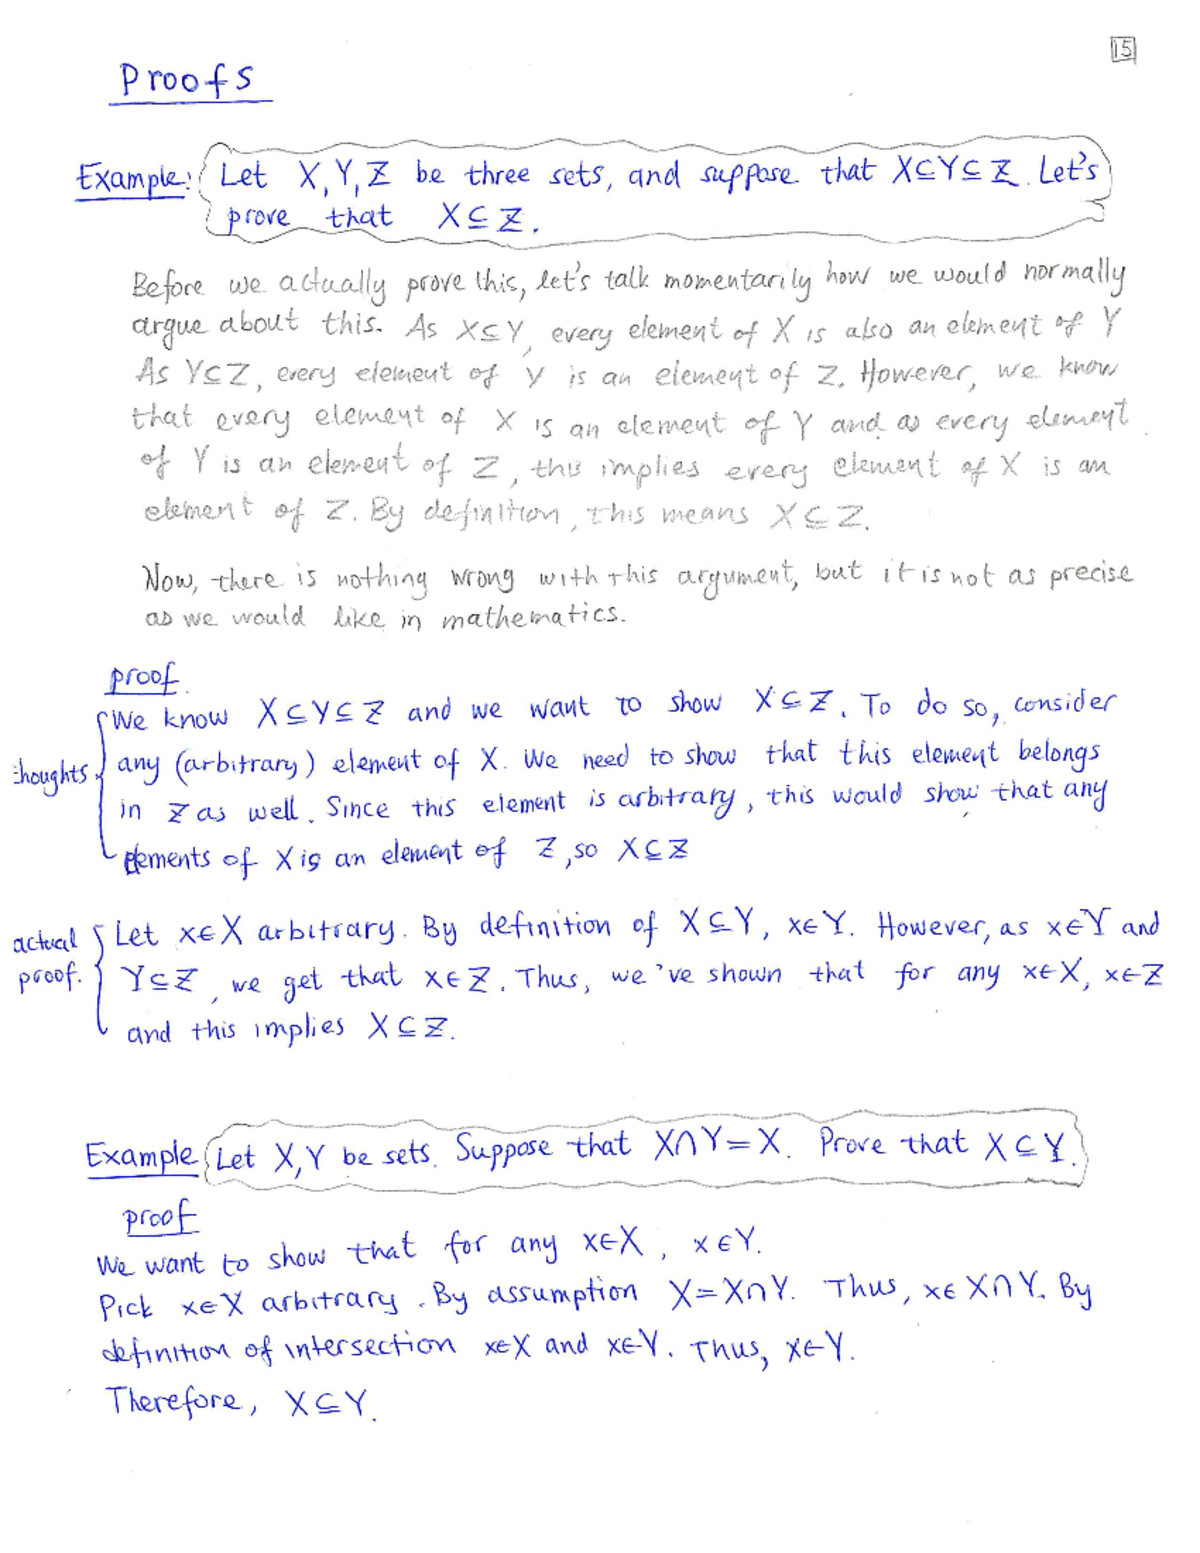 15
Proofs
Example: Let X, Y, Z be three sets, and suppose that X⊆Y⊆Z. Let's
prove that X⊆Z.
Before we actually prove this, let's talk momentarily how we would normally
argue about this. As X⊆Y, every element of X is also an element of Y
As Y⊆Z, every element of Y is an element of Z. However, we know
that every element of X is an element of Y and as every element
of Y is an element of Z, this implies every element of X is an
element of Z. By definition, this means X⊆Z.
Now, there is nothing wrong with this argument, but it is not as precise
as we would like in mathematics.
proof.
We know X⊆Y⊆Z and we want to show X⊆Z. To do so, consider
thoughts any (arbitrary) element of X. We need to show that this element belongs
in Z as well. Since this element is arbitrary, this would show that any
elements of X is an element of Z, so X⊆Z
actual Let x∈X arbitrary. By definition of X⊆Y, x∈Y. However, as x∈Y and
proof. Y⊆Z, we get that x∈Z. Thus, we've shown that for any x∈X, x∈Z
and this implies X⊆Z.
Example Let X, Y be sets. Suppose that X∩Y=X. Prove that X⊆Y.
proof
We want to show that for any x∈X, x∈Y.
Pick x∈X arbitrary. By assumption X=X∩Y. Thus, x∈X∩Y. By
definition of intersection x∈X and x∈Y. Thus, x∈Y.
Therefore, X⊆Y.